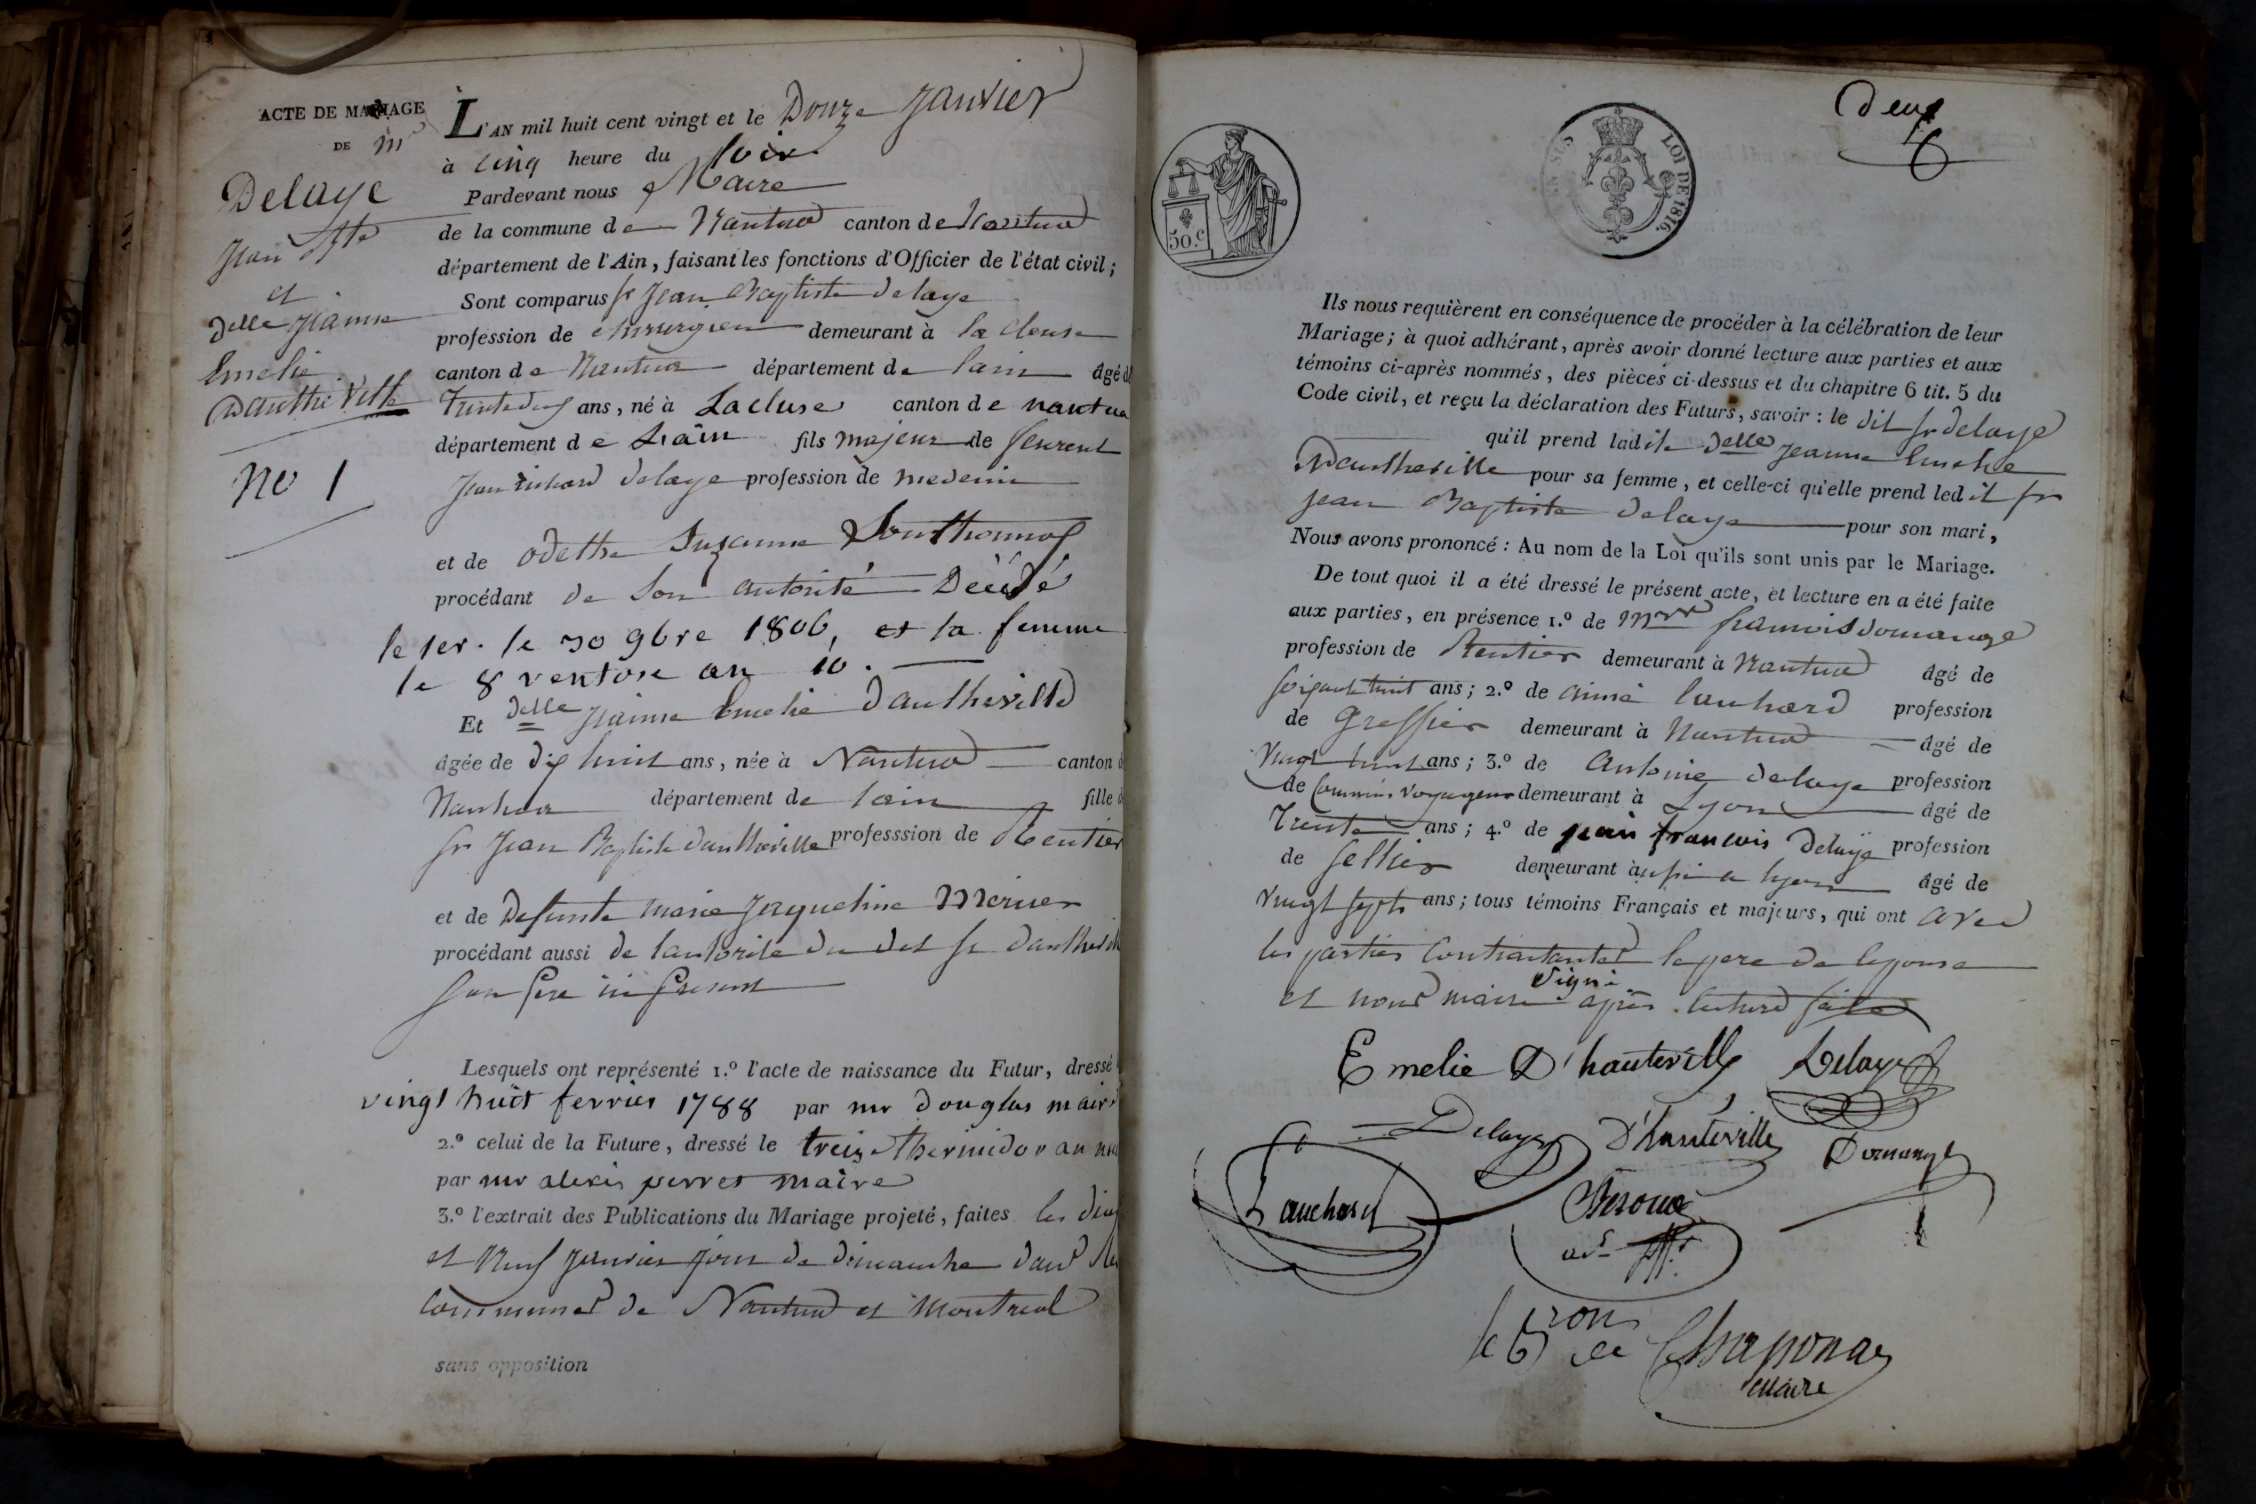 ACTE DE MARIAGE
DE Mr
Delaye
Jean Bte
et
Delle Jeanne
Emelie
Dautheville
No 1
L'AN mil huit cent vingt et le Douze Janvier
à cinq heure du soir
Pardevant nous Maire
de la commune de Nantua canton de Nantua
département de l'Ain, faisant les fonctions d'Officier de l'état civil;
Sont comparus sr Jean Baptiste delaye
profession de chirurgien demeurant à la Cluse
canton de Nantua département de lain âgé d
trente deux ans, né à Lacluse canton de nantua
département de Lain fils majeur de
Jean delaye profession de medecin
et de odette Suzanne
procédant de Son autorité Décédé
le 1er. le 30 9bre 1806, et la femme
le 8 ventose an 10.
Et delle Jeanne Emelie Dautheville
âgée de dix huit ans, née à Nantua canton d
Nantua département de lain fille d
sr Jean Baptiste dautheville professsion de Rentier
et de Defunte marie Jaqueline
procédant aussi de lautorité du dit sr dautheville
son père ici présent
Lesquels ont représenté 1.º l'acte de naissance du Futur, dressé
vingt huit fevrier 1788 par mr douglas maire
2.º celui de la Future, dressé le treize thermidor an
par mr alexis perret maire
3.º l'extrait des Publications du Mariage projeté, faites les deux
et neuf janvier jour de dimanche dans les
communes de Nantua et Montreal
sans opposition
deux
50.c
LOI DE 1816.
Ils nous requièrent en conséquence de procéder à la célébration de leur
Mariage; à quoi adhérant, après avoir donné lecture aux parties et aux
témoins ci-après nommés, des pièces ci-dessus et du chapitre 6 tit. 5 du
Code civil, et reçu la déclaration des Futurs, savoir: le dit sr delaye
qu'il prend ladite Delle Jeanne Emelie
Dautheville pour sa femme, et celle-ci qu'elle prend ledit sr
jean Baptiste delaye pour son mari,
Nous avons prononcé: Au nom de la Loi qu'ils sont unis par le Mariage.
De tout quoi il a été dressé le présent acte, et lecture en a été faite
aux parties, en présence 1.º de françois domange
profession de Rentier demeurant à Nantua âgé de
soixante huit ans; 2.º de aimé lauchard profession
de Greffier demeurant à Nantua âgé de
vingt huit ans; 3.º de Antoine delaye profession
de Commis voyageur demeurant à Lyon âgé de
Trente ans; 4.º de jean francois Delaye profession
de sellier demeurant aussi a lyon âgé de
vingt sept ans; tous témoins Français et majeurs, qui ont avec
les parties Contractantes le pere de lepouse
et nous maire signé après lecture faite
Emelie D'hauteville Delaye
Delaye D'hauteville Domange
Lauchard
le Bron de Chaponay
maire